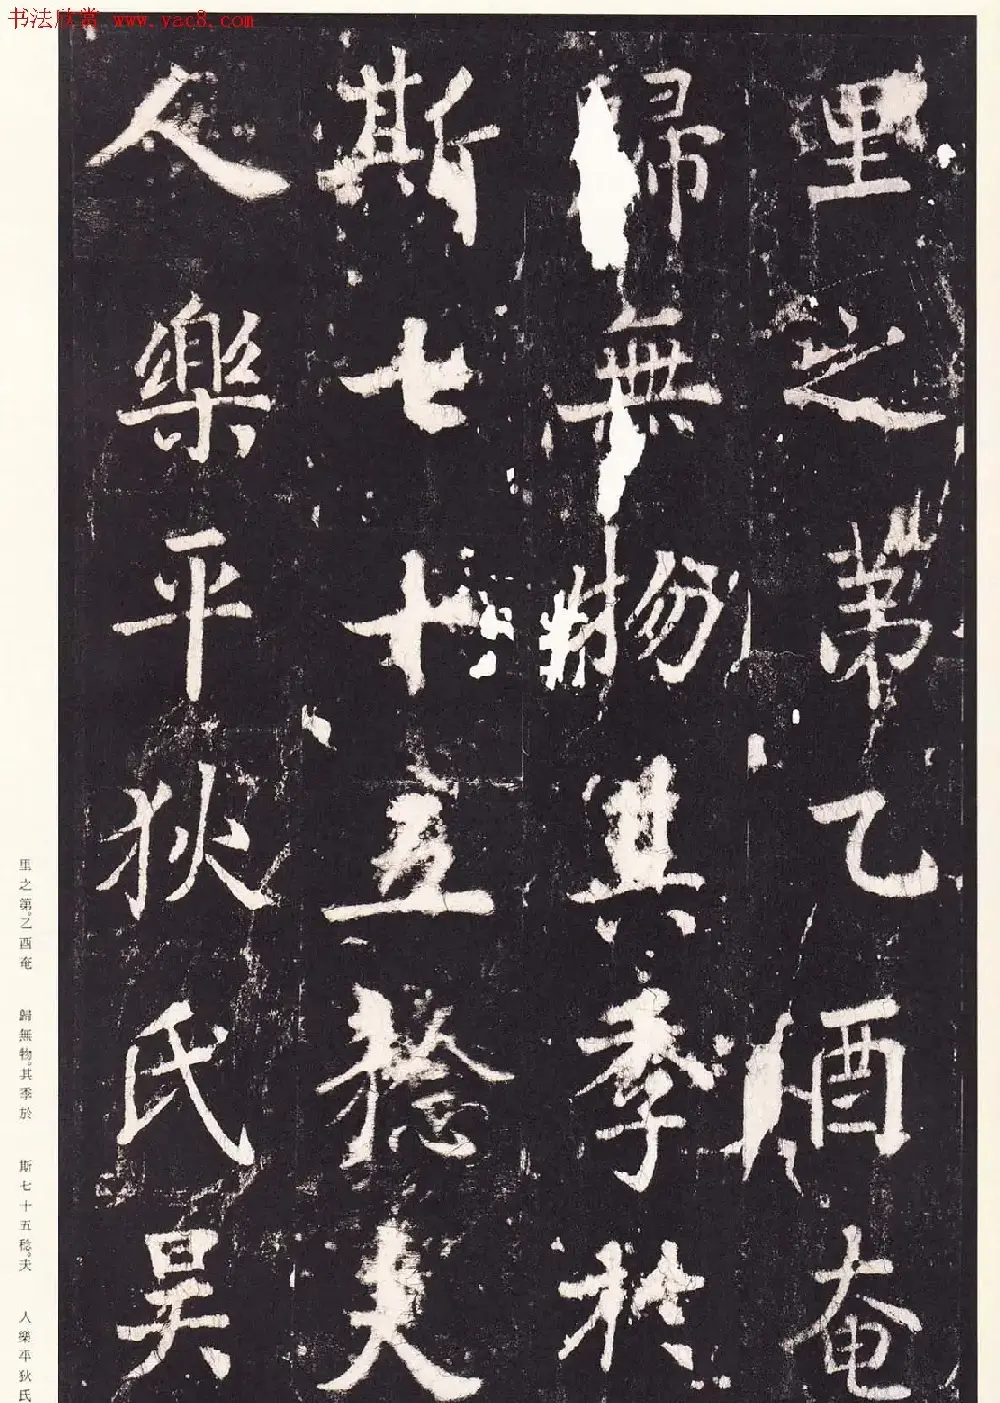 书法欣赏 www.yac8.com
里之第乙酉奄
歸無物其季於
斯七十五稔夫
人樂平狄氏昊
里之第。乙酉奄　歸無物。其季於　斯七十五稔。天　人樂平狄氏